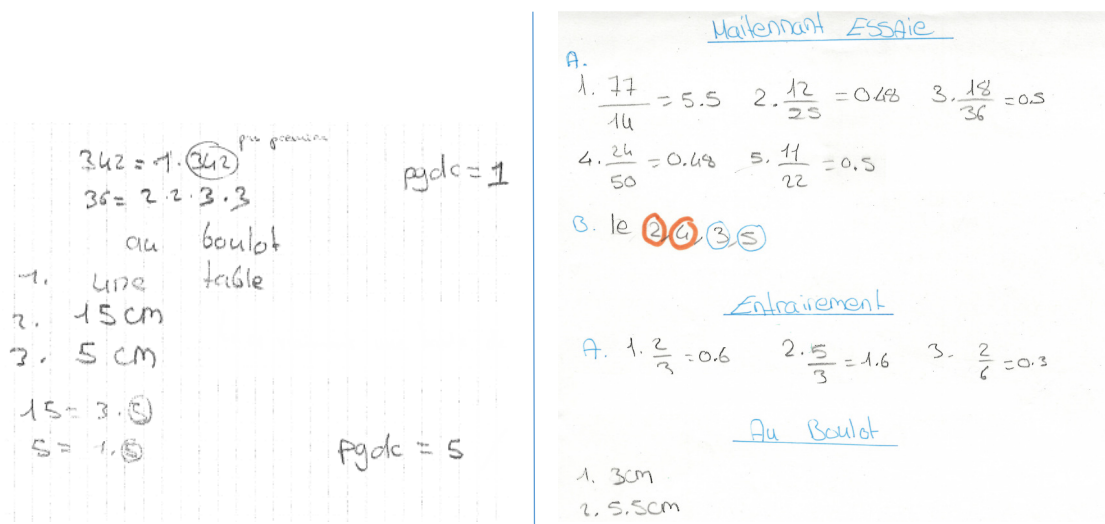 342 = 1 . 342 pas premier
36 = 2 . 2 . 3 . 3
pgdc = 1
au boulot
1. une table
2. 15 cm
3. 5 cm
15 = 3 . 5
5 = 1 . 5
pgdc = 5
Maitennant ESSAie
A.
1. 77/14 = 5.5 2. 12/25 = 0.48 3. 18/36 = 0.5
4. 24/50 = 0.48 5. 11/22 = 0.5
B. le 2, 4, 3, 5
Entrairement
A. 1. 2/3 = 0.6 2. 5/3 = 1.6 3. 2/6 = 0.3
Au Boulot
1. 3cm
2. 5.5cm